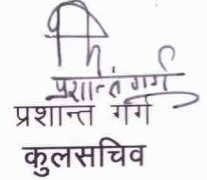 प्रशान्त गर्ग
प्रशान्त गर्ग
कुलसचिव